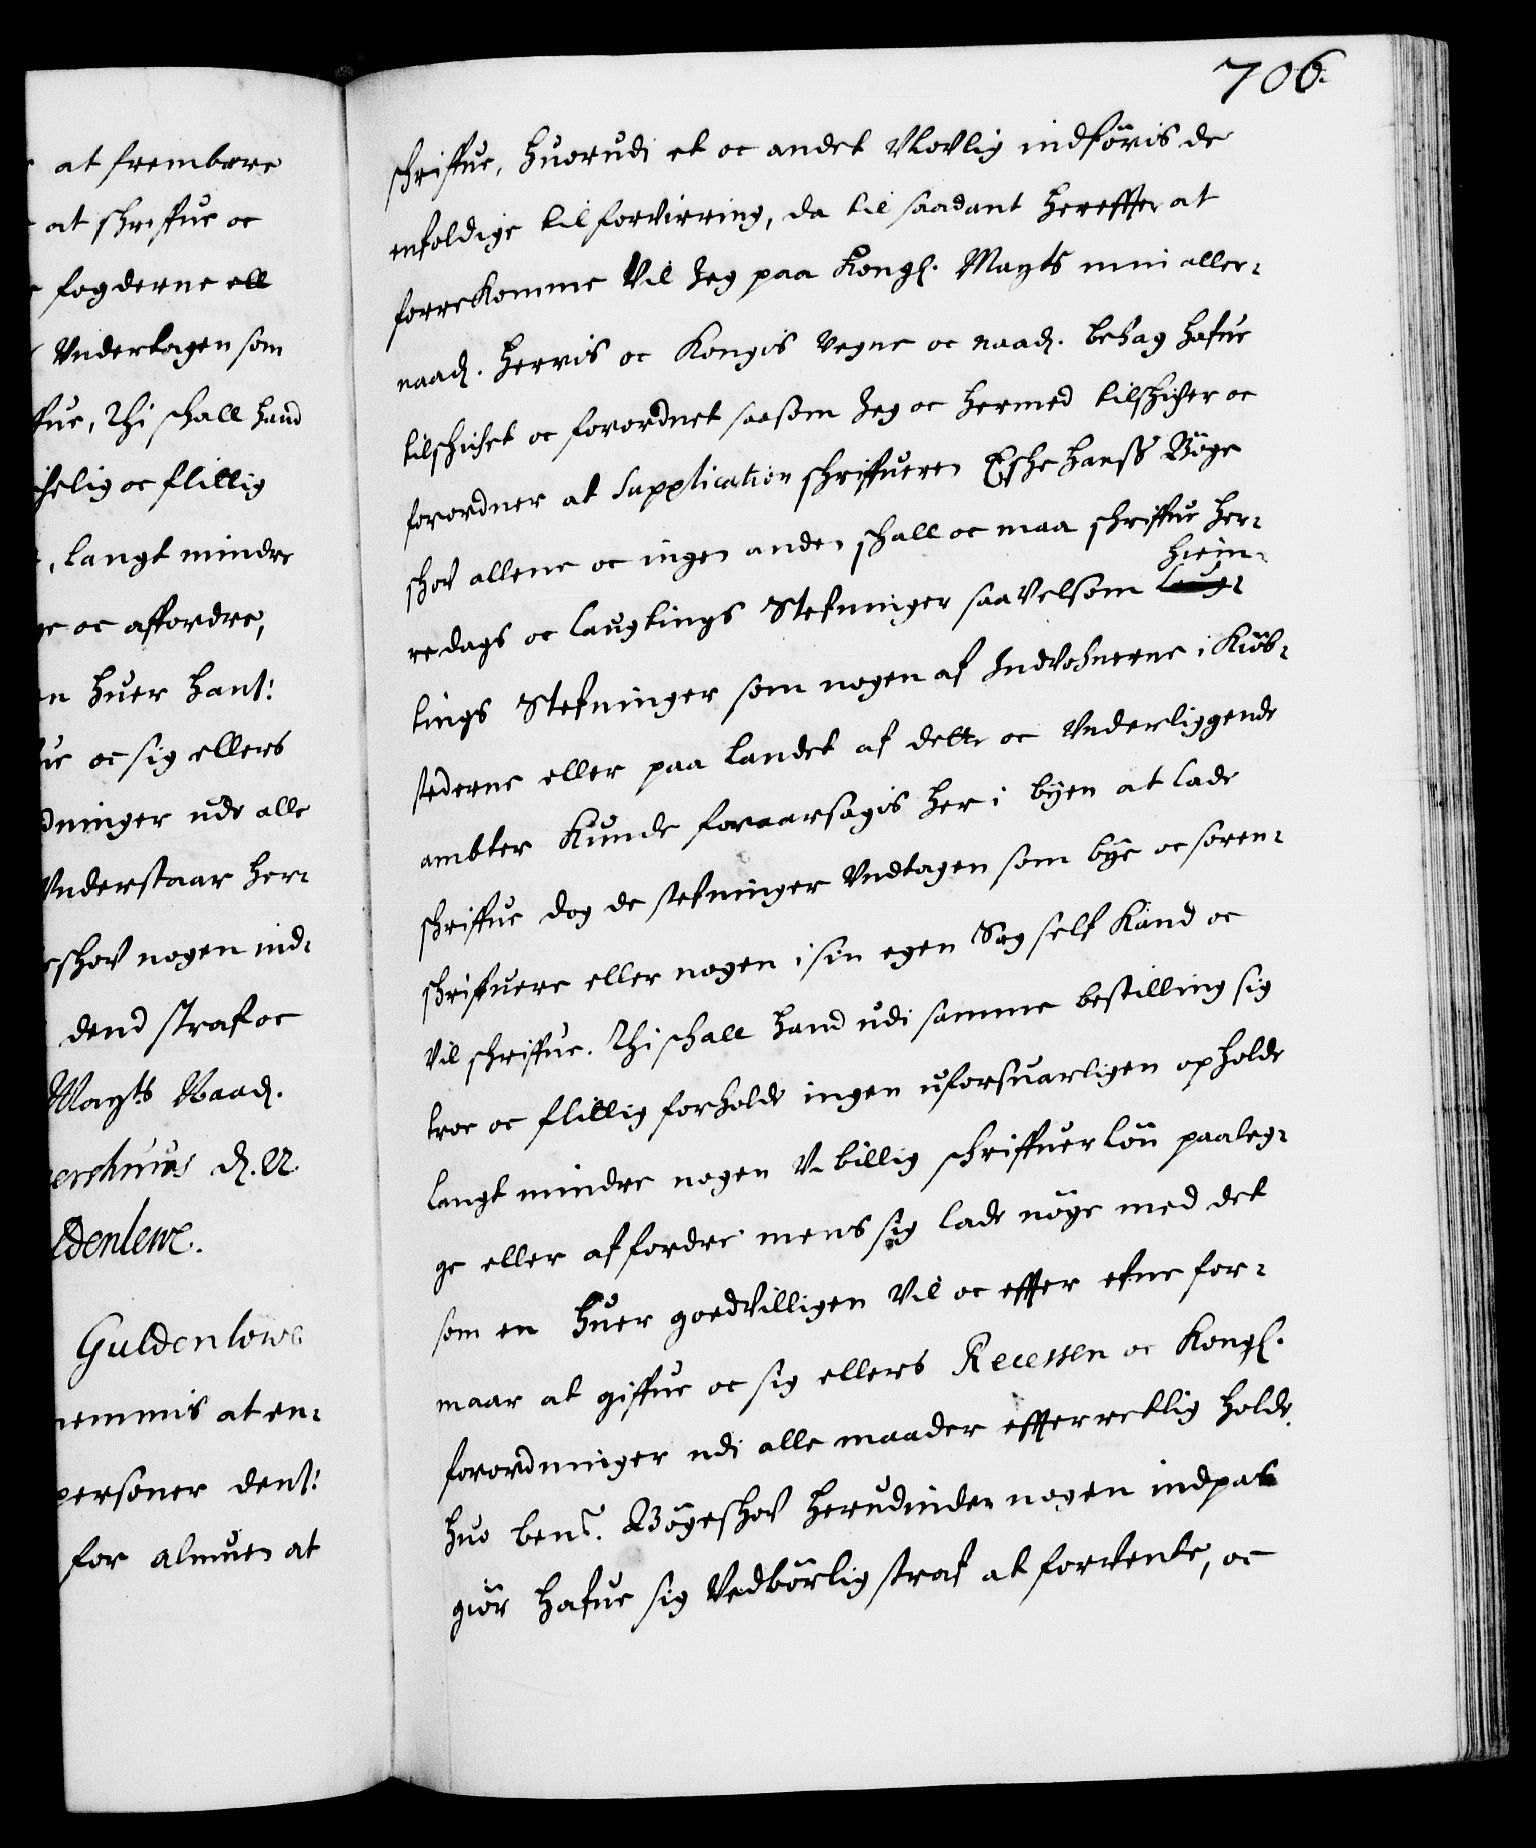 at frembære
at schrifue oc
fogderne ell
Vndertagen som
fue, Thi schall hand
chelig oc flittig
, langt mindre
ge oc affordre,
en huer hant:
fue oc sig ellers
dninger udi alle
Vnderstaar her-
eschov nogen ind-
dend straf oc
Mayts Naad.
ershuus d. 22.
ldenlewe.
Guldenlowe
nemmis at en-
personer dent:
for almuen at
706.
schriffue, huorudi et oc andet Vlovlig indføris de
enfoldige til forvirring, da til saadant hereffter at
forrekomme Vil Jeg paa Kongl. Mayts min aller-
naad. Herris oc Kongis vegne oc naad. behag hafue
tilschichet oc forordnet saasom Jeg oc hermed tilschicher oc
forordner at Supplication schriffueren Esche Hanss Bøge
schov allene oc ingen anden schall oc maa schriffue her-
redags oc laugtings Stefninger saavelsom hiem-
tings Stefninger som nogen af Indvohnerne i Kiøb-
stederne eller paa landet af dette oc Vnderliggende
ambter Kunde foraarsagis her i byen at lade
schriffue dog de stefninger Vndtagen som bye oc soren-
schriffuere eller nogen i sin egen Sag self Kand oc
Vil schriffue. Thi schall hand udi samme bestilling sig
troe oc flittig forholde ingen uforsuarligen opholde
langt mindre nogen V-billig schriffuerløn paaleg-
ge eller affordre mens sig lade nøye med det
som en huer goedvilligen Vil oc effter efne for-
maar at giffue oc sig ellers Recessen oc Kongl.
forordninger udi alle maader effterrettlig holde.
huo bent. Bøgeschov herudinden nogen indpas
giør hafue sig Vedbørlig straf at forvente, oc